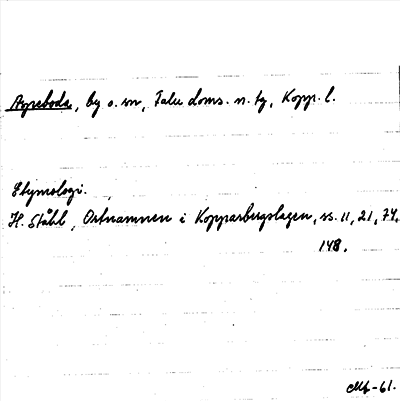 Aspeboda, by o. sn, Falu doms. n. tg, Kopp. l.
Etymologi.
H. Ståhl, Ortnamnen i Kopparbergslagen, ss. 11, 21, 74,
148.
-61.